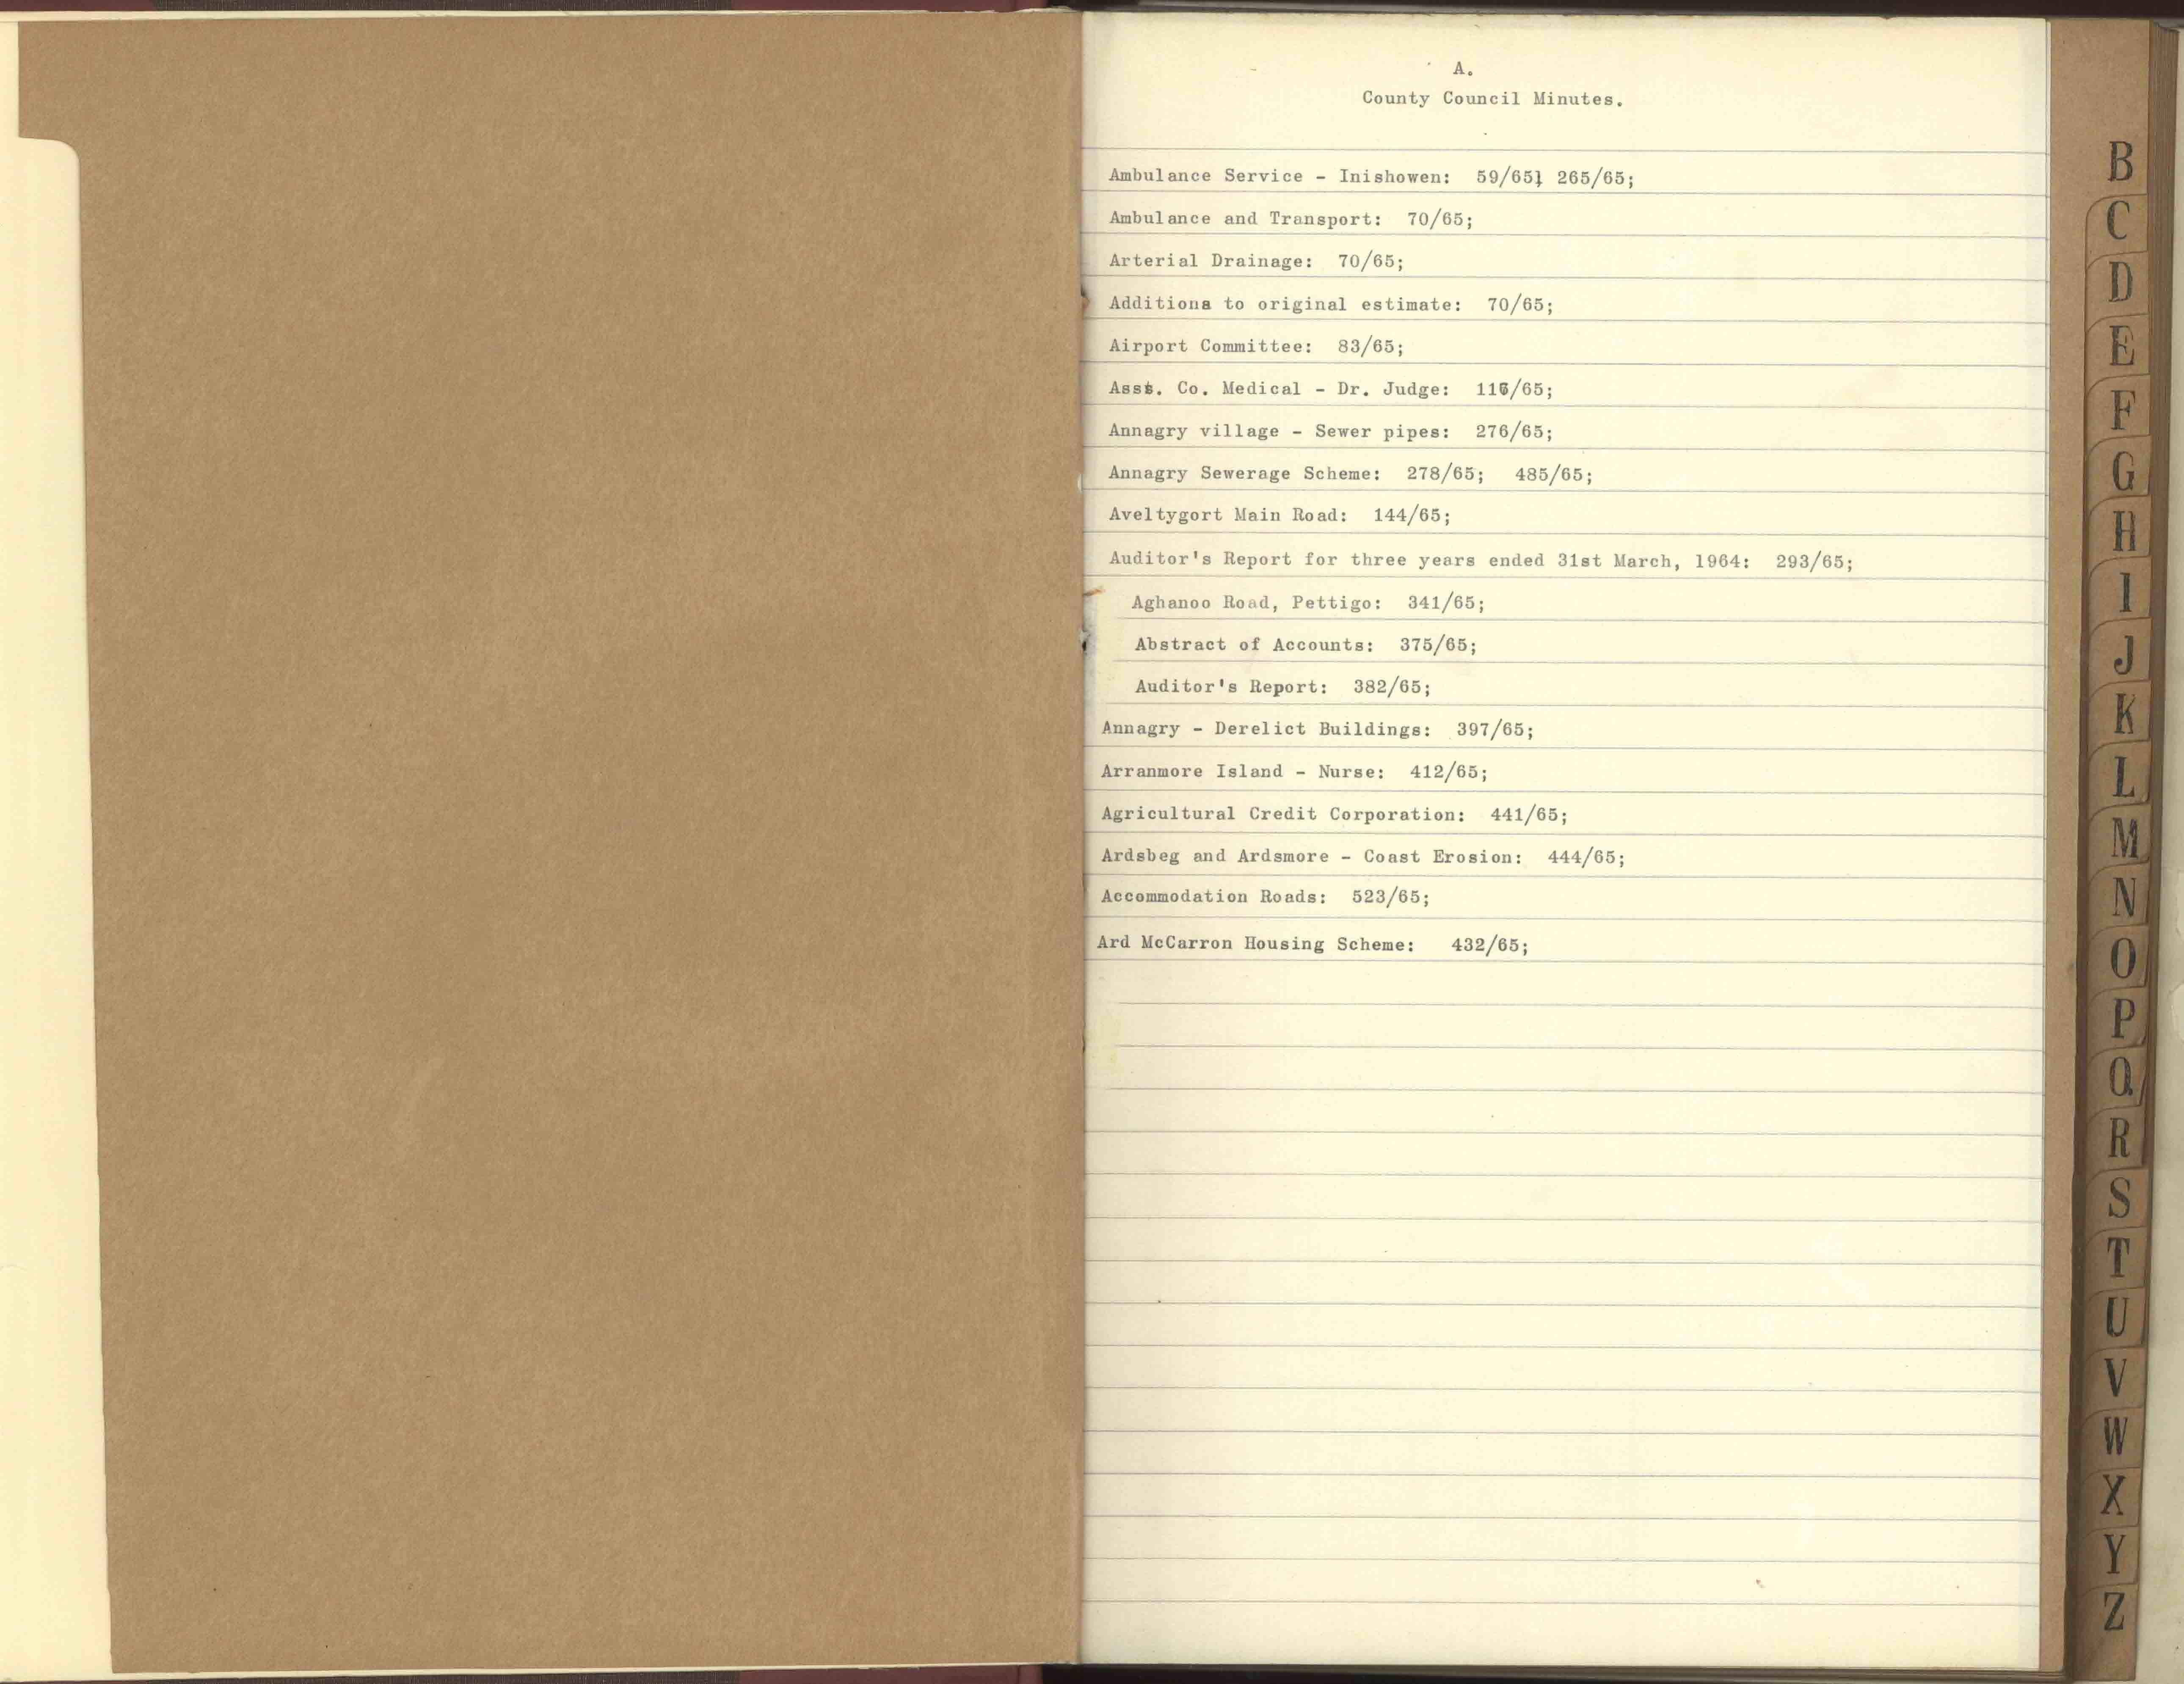 A.
County Council Minutes.
Ambulance Service - Inishowen: 59/65; 265/65;
Ambulance and Transport: 70/65;
Arterial Drainage: 70/65;
Additions to original estimate: 70/65;
Airport Committee: 83/65;
Asst. Co. Medical - Dr. Judge: 116/65;
Annagry village - Sewer pipes: 276/65;
Annagry Sewerage Scheme: 278/65; 485/65;
Aveltygort Main Road: 144/65;
Auditor's Report for three years ended 31st March, 1964: 293/65;
Aghanoo Road, Pettigo: 341/65;
Abstract of Accounts: 375/65;
Auditor's Report: 382/65;
Annagry - Derelict Buildings: 397/65;
Arranmore Island - Nurse: 412/65;
Agricultural Credit Corporation: 441/65;
Ardsbeg and Ardsmore - Coast Erosion: 444/65;
Accommodation Roads: 523/65;
Ard McCarron Housing Scheme: 432/65;
B
C
D
E
F
G
H
I
J
K
L
M
N
O
P
Q
R
S
T
U
V
W
X
Y
Z